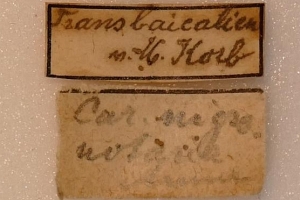 Transbaicalien
v. M. Korb
Car. nigro
notaria